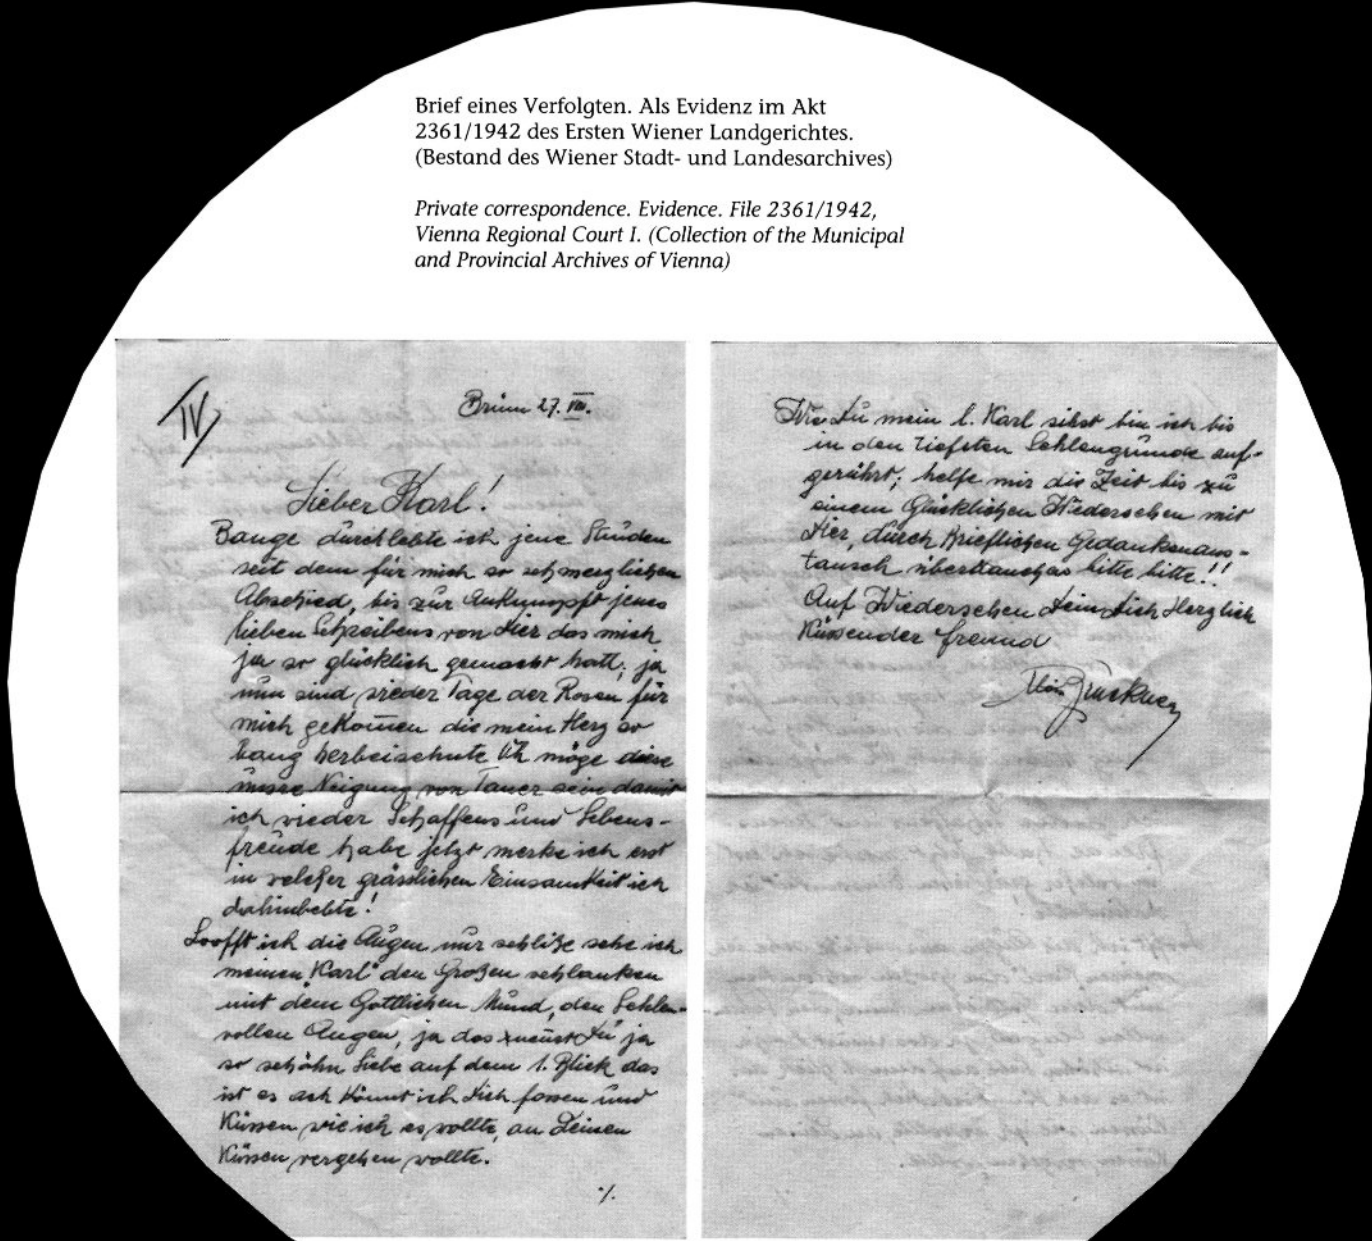 Brief eines Verfolgten. Als Evidenz im Akt
2361/1942 des Ersten Wiener Landgerichtes.
(Bestand des Wiener Stadt- und Landesarchives)
Private correspondence. Evidence. File 2361/1942,
Vienna Regional Court I. (Collection of the Municipal
and Provincial Archives of Vienna)
IV
Brünn 27. VIII.
Lieber Karl!
Bange durchlebte ich jene Stunden
seit dem für mich so schmerzlichen
Abschied, bis zur Ankumpft jenes
lieben Schreibens von Dier das mich
ja so glücklich gemacht hatt; ja
nun sind wieder Tage der Rosen für
mich gekommen die mein Herz so
bang herbeisehnte Oh möge diese
unsre Neigung von Tauer sein damit
ich wieder Schaffens und Lebens-
freude habe jetzt merke ich erst
in welcher grässlichen Einsamkeit ich
dahinlebte!
Soofft ich die Augen nur schliße sehe ich
meinen Karl den Großen schlanken
mit dem Gottlichen Mund, den Sehlen-
vollen Augen, ja das Du ja
so schöhn Liebe auf dem 1. Blick das
ist es ach könnt ich Dich fassen und
Küssen wie ich es wollte, an Deinen
Küssen vergehen wollte.
./.
Wie Du mein l. Karl sihst bin ich bis
in den tiefsten Sehlengrunde auf-
gerührt; helfe mir die Zeit bis zu
einem Glücklichen Wiedersehen mit
Dier, durch Brieflichen Gedankenaus-
tausch bitte bitte!!
Auf Wiedersehen Dein Dich Herzlich
Küssender freund